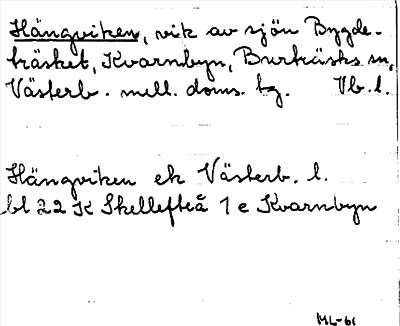 Hängviken, vik av sjön Bygde-
träsket, Kvarnbyn, Burträsks sn,
Västerb. mell. doms. tg. Vb. l.
Hängviken ek Västerb. l.
bl 22 K Skellefteå 1 e Kvarnbyn
ML-61